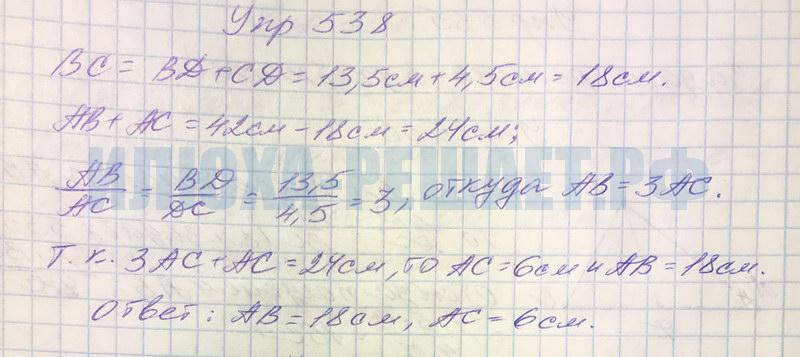 Упр 538
BC = BD + CD = 13,5см + 4,5см = 18см.
AB + AC = 42см - 18см = 24см;
ИЛЮХА-РЕШАЕТ.РФ
AB/AC = BD/DC = 13,5/4,5 = 3, откуда AB = 3AC.
Т. к. 3AC + AC = 24см, то AC = 6см и AB = 18см.
Ответ: AB = 18см, AC = 6см.